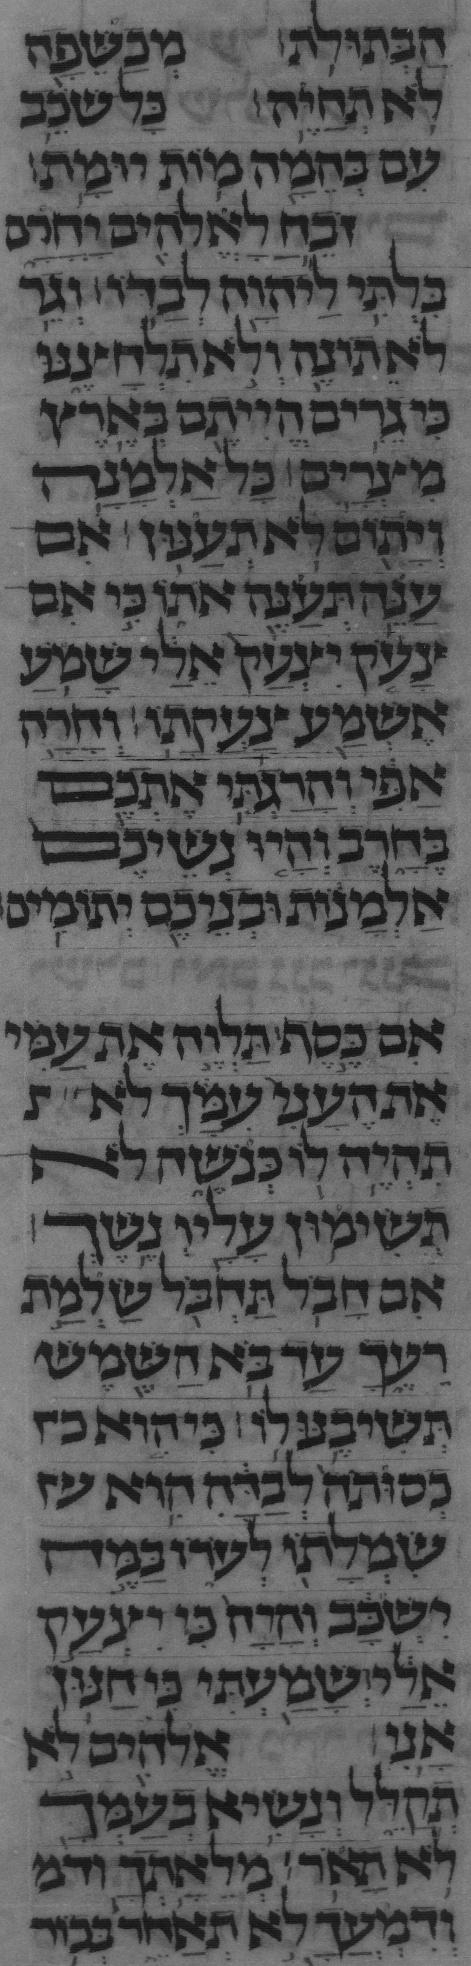 הַבְּתוּלֹת׃ מְכַשֵּׁפָה
לֹא תְחַיֶּה׃ כָּל שֹׁכֵב
עִם בְּהֵמָה מוֹת יוּמָת׃
זֹבֵחַ לָאֱלֹהִים יָחֳרָם
בִּלְתִּי לַיהוָה לְבַדּוֹ׃ וְגֵר
לֹא תוֹנֶה וְלֹא תִלְחָיצֶנּוּ
כִּי גֵרִים הֱיִיתֶם בְּאֶרֶץ
מִצְרָיִם׃ כָּל אַלְמָנָה
וְיָתוֹם לֹא תְעַנּוּן׃ אִם
עַנֵּה תְעַנֶּה אֹתוֹ כִּי אִם
צָעֹק יִצְעַק אֵלַי שָׁמֹעַ
אֶשְׁמַע צַעֲקָתוֹ׃ וְחָרָה
אַפִּי וְהָרַגְתִּי אֶתְכֶם
בֶּחָרֶב וְהָיוּ נְשֵׁיכֶם
אַלְמָנוֹת וּבְנֵיכֶם יְתוֹמִים׃
אִם כֶּסֶף תַּלְוֶה אֶת עַמִּי
אֶת הֶעָנִי עִמָּךְ לֹא ת
תִהְיֶה לוֹ כְּנֹשֶׁה לֹא
תְשִׂימוּן עָלָיו נֶשֶׁךְ׃
אִם חָבֹל תַּחְבֹּל שַׂלְמַת
רֵעֶךָ עַד בֹּא הַשֶּׁמֶשׁ
תְּשִׁיבֶנּוּ לוֹ׃ כִּי הִוא כ
כְסוּתֹה לְבַדָּהּ הִוא ע
שִׂמְלָתוֹ לְעֹרוֹ בַּמֶּה
יִשְׁכָּב וְהָיָה כִּי יִצְעַק
אֵלַי וְשָׁמַעְתִּי כִּי חַנּוּן
אָנִי׃ אֱלֹהִים לֹא
תְקַלֵּל וְנָשִׂיא בְעַמְּךָ
לֹא תָאֹר׃ מְלֵאָתְךָ וְדמ
וְדִמְעֲךָ לֹא תְאַחֵר בְּכוֹר